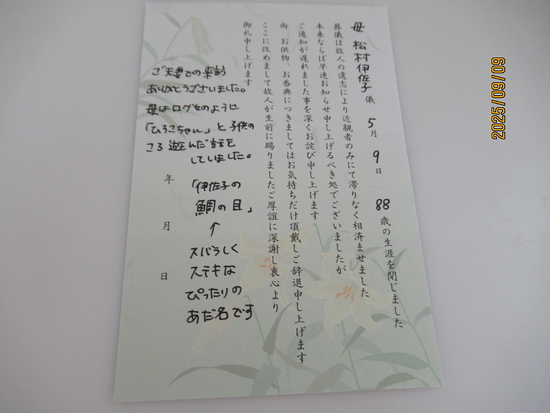 母 松村伊佐子 儀 5月9日 88歳の生涯を閉じました
葬儀は故人の遺志により近親者のみにて滞りなく相済ませました
本来ならば早速お知らせ申し上げるべき処でございましたが
ご通知が遅れました事を深くお詫び申し上げます
尚 お供物、お香典につきましてはお気持ちだけ頂戴しご辞退申し上げます
ここに改めまして故人が生前に賜りましたご厚誼に深謝し衷心より
御礼申し上げます
年 月 日
ありがとうございました。
「ひろこちゃん」と子供の
ころ遊んだ話を
していました。
「伊佐子の
鯛の目」
↑
スバラしく
ステキな
ぴったりの
あだ名です
2025/09/09